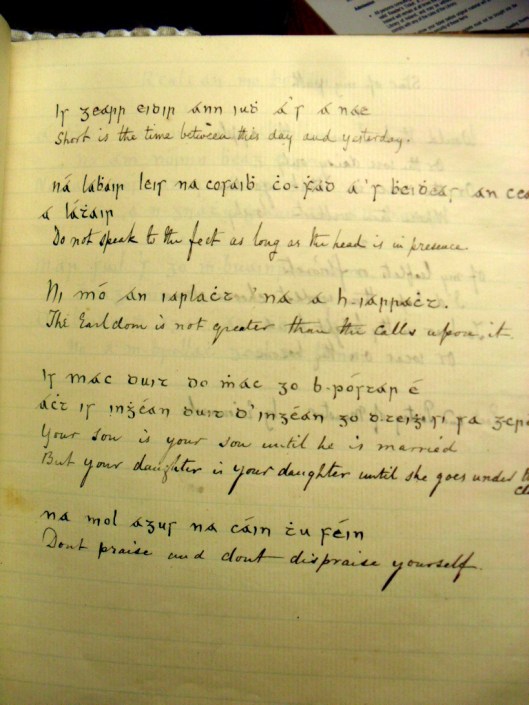 Is gearr eidir ánn iuḋ á's á nae
Short is the time between this day and yesterday.
ná laḃair leis na cosaiḃ ċo-ḟad á's ḃeiḋeas an cea
á láṫair
Do not speak to the feet as long as the head is in presence
Ni mó an iarlaċt 'na a h-iarraċt.
The Earldom is not greater than the calls upon it.
Is mác duit do ṁac go b-póstar é
áċt is inġéan duit d'inġéan go
Your son is your son until he is married
But your daughter is your daughter until she goes under
na mol águs na cáin ṫu féin
Dont praise and dont dispraise yourself.